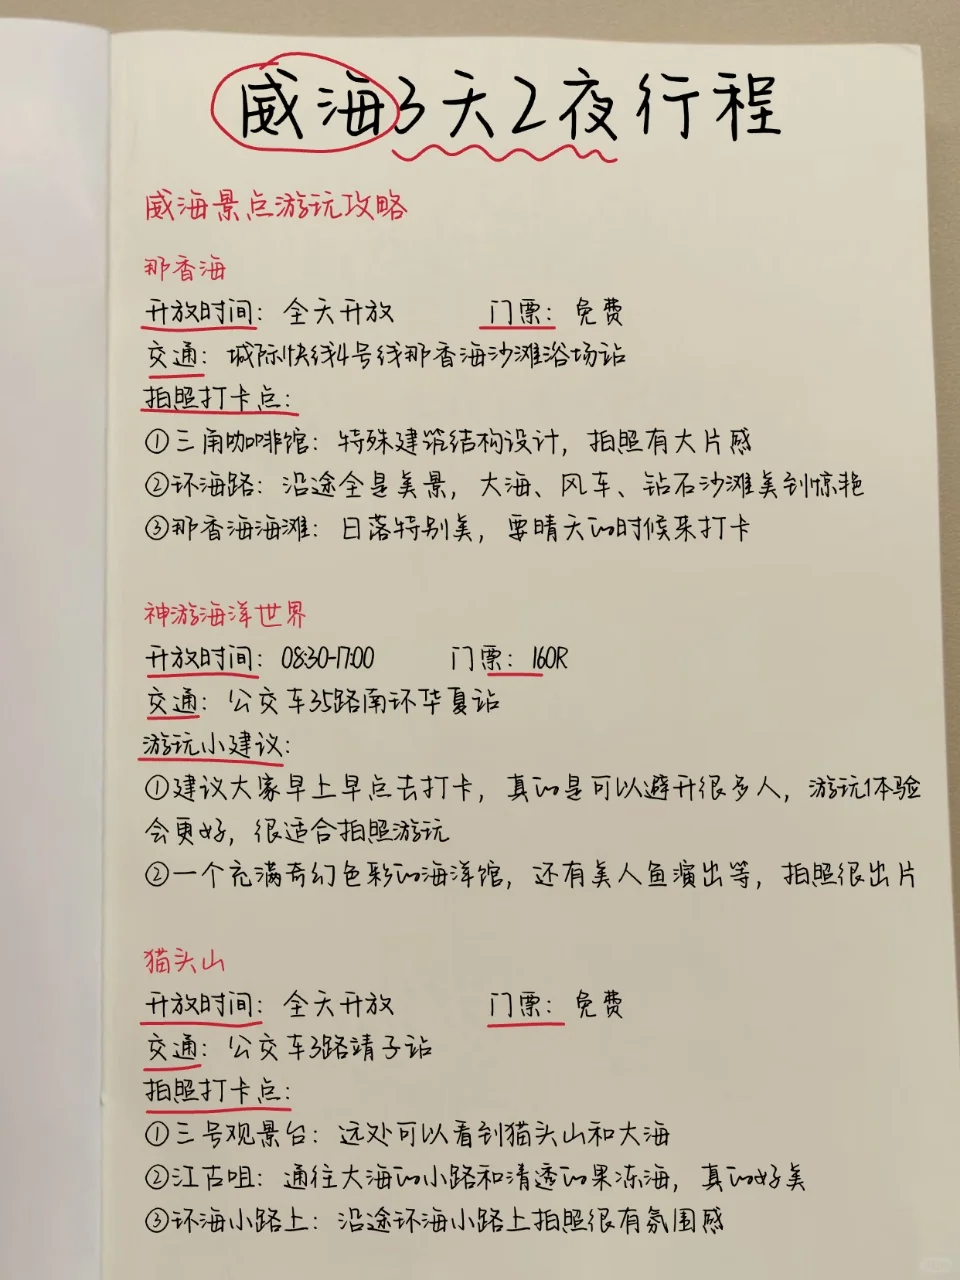 威海3天2夜行程
威海景点游玩攻略
那香海
开放时间：全天开放 门票：免费
交通：城际快线4号线那香海沙滩浴场站
拍照打卡点：
①三角咖啡馆：特殊建筑结构设计，拍照有大片感
②环海路：沿途全是美景，大海、风车、钻石沙滩美到惊艳
③那香海海滩：日落特别美，要晴天的时候来打卡
神游海洋世界
开放时间：08:30-17:00 门票：160R
交通：公交车35路南环华夏站
游玩小建议：
①建议大家早上早点去打卡，真的是可以避开很多人，游玩体验
会更好，很适合拍照游玩
②一个充满奇幻色彩的海洋馆，还有美人鱼演出等，拍照很出片
猫头山
开放时间：全天开放 门票：免费
交通：公交车3路靖子站
拍照打卡点：
①三号观景台：远处可以看到猫头山和大海
②江古咀：通往大海的小路和清透的果冻海，真的好美
③环海小路上：沿途环海小路上拍照很有氛围感